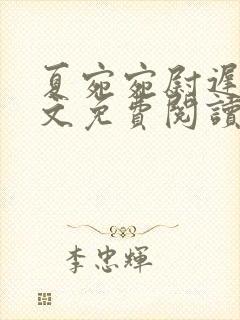 夏宛宛尉遲
文免費閱讀
李忠輝